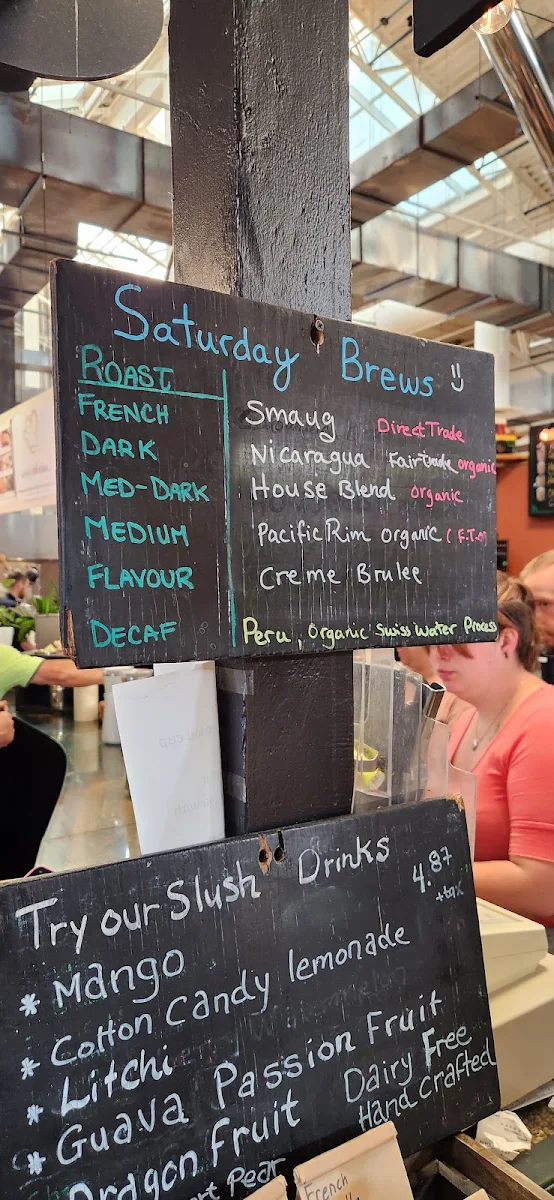 Saturday Brews
ROAST
FRENCH Smaug Direct Trade
DARK Nicaragua Fair trade organic
MED-DARK House Blend organic
MEDIUM Pacific Rim organic (F.T.O)
FLAVOUR Creme Brulee
DECAF Peru, Organic Swiss Water Process
Try our Slush Drinks
4.87
+tax
* Mango
* Cotton Candy lemonade
* Litchi
* Guava Passion Fruit
Dragon Fruit
Dairy Free
Hand Crafted
Pear
French